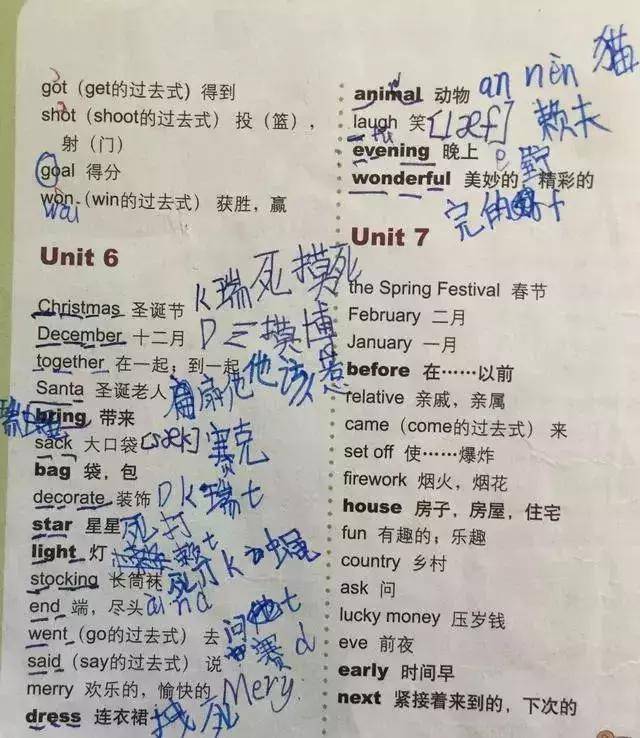 got (get的过去式) 得到
shot (shoot的过去式) 投（篮），
射（门）
goal 得分
won (win的过去式) 获胜，赢
wai
Unit 6
Christmas 圣诞节 k瑞死摸死
December 十二月 D三摸博
together 在一起；到一起
Santa 圣诞老人 扇他
bring 带来
sack 大口袋 [sæk] 赛克
bag 袋，包
decorate 装饰 Dk瑞t
star 星星 死打
light 灯 赖t
stocking 长筒袜 死打k
end 端，尽头 aind
went (go的过去式) 去 问t
said (say的过去式) 说 赛d
merry 欢乐的，愉快的 Mery
dress 连衣裙
animal 动物 an nèn 猫
laugh 笑 [læf] 赖夫
evening 晚上
wonderful 美妙的，精彩的
Unit 7
the Spring Festival 春节
February 二月
January 一月
before 在……以前
relative 亲戚，亲属
came (come的过去式) 来
set off 使……爆炸
firework 烟火，烟花
house 房子，房屋，住宅
fun 有趣的；乐趣
country 乡村
ask 问
lucky money 压岁钱
eve 前夜
early 时间早
next 紧接着来到的，下次的